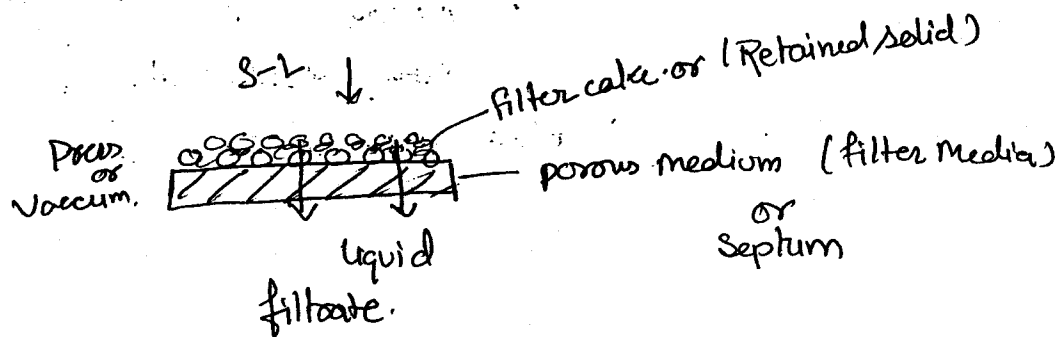 S-L
filter cake or (Retained solid)
Proces
or
Vaccum.
porous medium (filter Media)
or
Septum
liquid
filtrate.